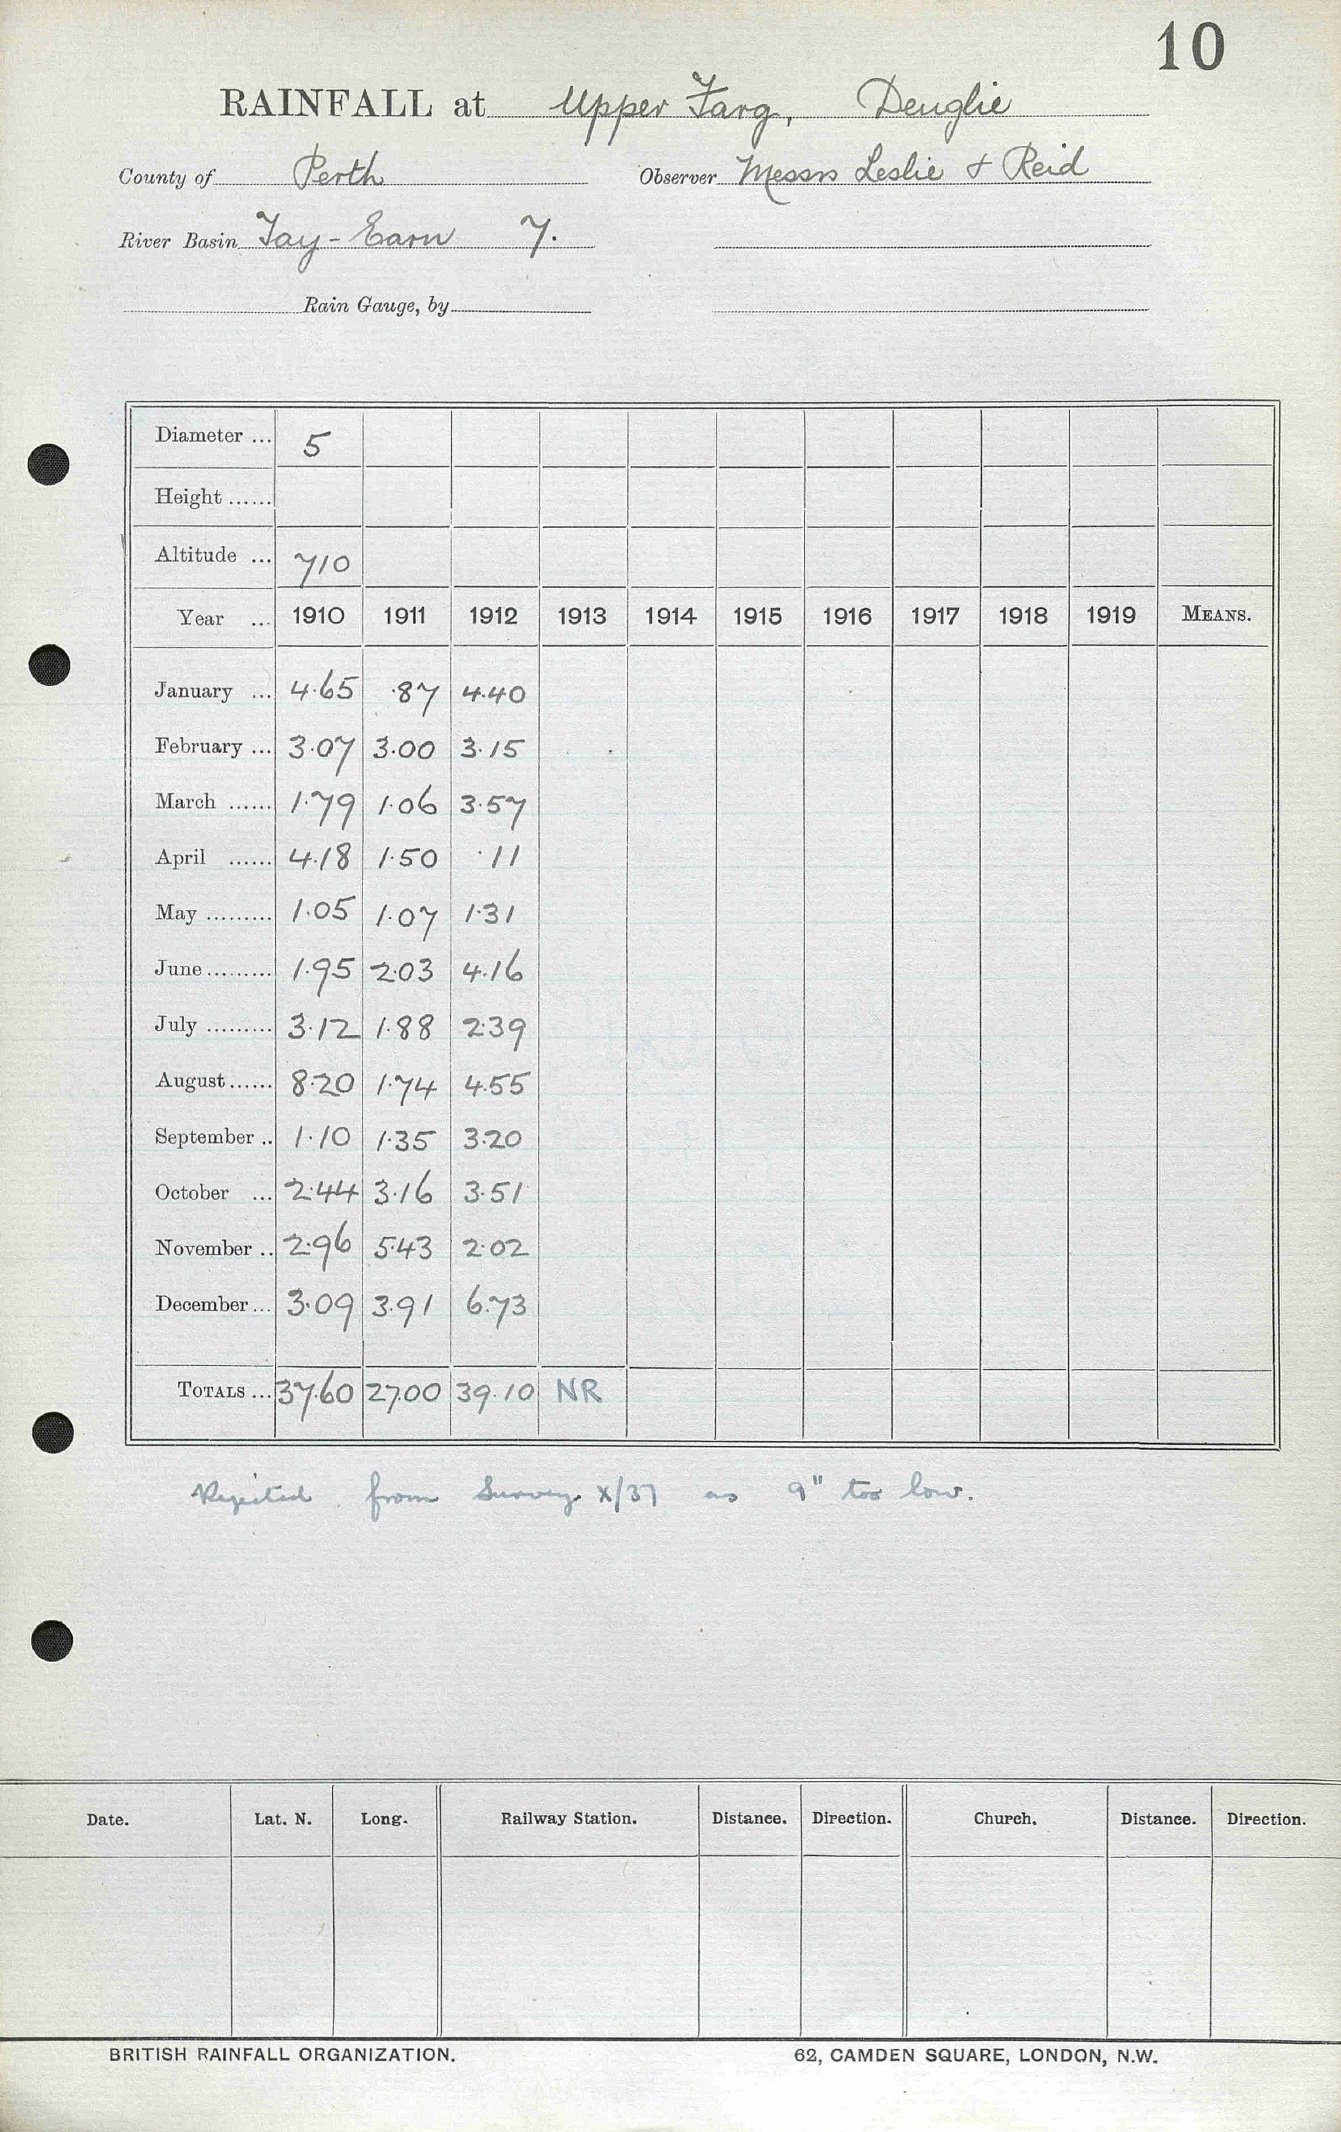 10
RAINFALL at Upper Farg, Deuglie
County of Perth Observer Messrs Leslie & Reid
River Basin Tay - Earn 7.
Rain Gauge, by
Diameter ... 5
Height ......
Altitude ... 710
Year ... 1910 1911 1912 1913 1914 1915 1916 1917 1918 1919 MEANS.
January ... 4.65 .87 4.40
February ... 3.07 3.00 3.15
March ...... 1.79 1.06 3.57
April ...... 4.18 1.50 .11
May ......... 1.05 1.07 1.31
June ......... 1.95 2.03 4.16
July ......... 3.12 1.88 2.39
August ...... 8.20 1.74 4.55
September .. 1.10 1.35 3.20
October ... 2.44 3.16 3.51
November .. 2.96 5.43 2.02
December ... 3.09 3.91 6.73
TOTALS ... 37.60 27.00 39.10 NR
Rejected from Survey X/37 as 9" too low.
Date. Lat. N. Long. Railway Station. Distance. Direction. Church. Distance. Direction.
BRITISH RAINFALL ORGANIZATION. 62, CAMDEN SQUARE, LONDON, N.W.